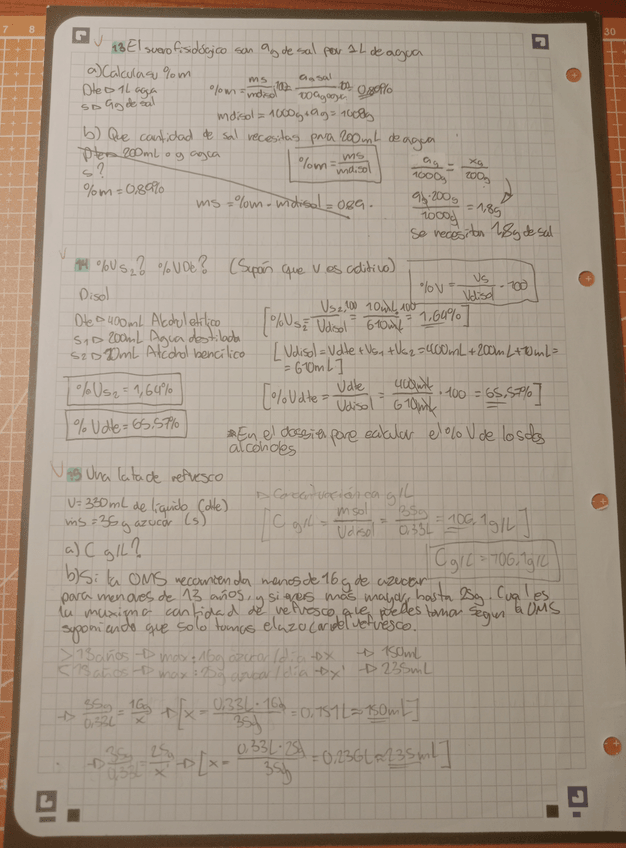 7 8
30
13 El suero fisiológico son 9g de sal por 1L de agua
a) Calcula su %m
Dte → 1L agua
s → 9g de sal
%m = ms/mdisol · 100 = 9g sal/1009g agua · 100 = 0,89%
mdisol = 1000g + 9g = 1009g
b) Que cantidad de sal necesitas para 200mL de agua
Dte → 200mL o g agua
s?
%m = 0,89%
%m = ms/mdisol
ms = %m · mdisol = 0,89 ·
9g/1000g = xg/200g
9g·200g/1000g = 1,8g
Se necesitan 1,8g de sal
14 %Vs₂? %VDte? (Supón que V es aditivo)
%V = Vs/Vdisol · 100
Disol
Dte → 400mL Alcohol etílico
s₁ → 200mL Agua destilada
s₂ → 10mL Alcohol bencílico
[%Vs₂ = Vs₂·100/Vdisol = 10mL·100/610mL = 1,64%]
[Vdisol = Vdte + Vs₁ + Vs₂ = 400mL + 200mL + 10mL =
= 610mL]
%Vs₂ = 1,64%
%Vdte = 65,57%
[%Vdte = Vdte/Vdisol = 400mL/610mL · 100 = 65,57%]
*En el dossier pone calcular el %V de los dos
alcoholes
15 Una lata de refresco
V = 330mL de líquido (dte)
ms = 35g azucar (s)
→ Concentración en g/L
[C g/L = msol/Vdisol = 35g/0,33L = 106,1g/L]
a) C g/L?
C g/L = 106,1g/L
b) Si la OMS recomienda menos de 16g de azucar
para menores de 13 años, y si eres más mayor, hasta 25g. Cual es
la maxima cantidad de refresco que puedes tomar segun la OMS
suponiendo que solo tomas el azucar del refresco.
>13 años → max = 16g azucar/día → x → 150mL
<13 años → max = 25g azucar/día → x' → 235mL
→ 35g/0,33L = 16g/x → [x = 0,33L·16g/35g = 0,151L ≈ 150mL]
→ 35g/0,33L = 25g/x' → [x = 0,33L·25g/35g = 0,236L ≈ 235mL]